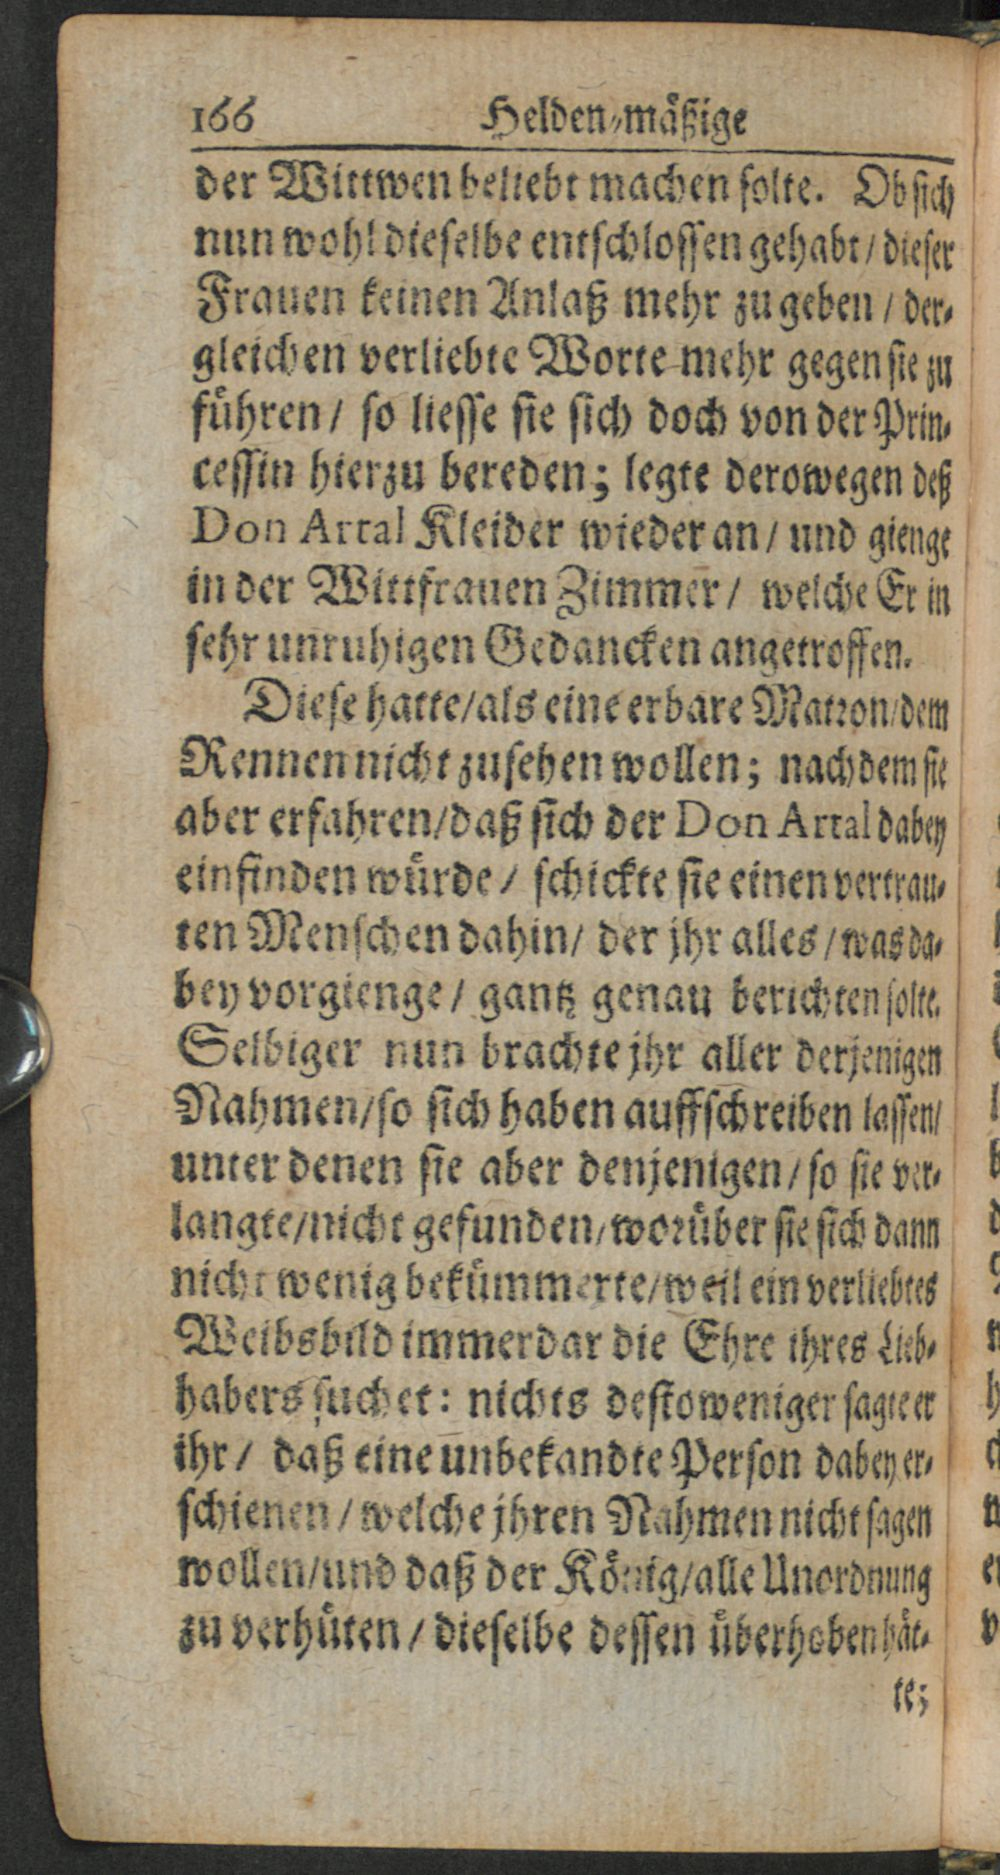 166 Helden-mäßige
der Wittwen beliebt machen solte. Ob sich
nun wohl dieselbe entschlossen gehabt / dieser
Frauen keinen Anlaß mehr zu geben / der-
gleichen verliebte Worte mehr gegen sie zu
führen / so liesse sie sich doch von der Prin-
cessin hierzu bereden; legte derowegen deß
Don Artal Kleider wieder an / und gienge
in der Wittfrauen Zimmer / welche Er in
sehr unruhigen Gedancken angetroffen.
Diese hatte/als eine erbare Matron/dem
Rennen nicht zusehen wollen; nachdem sie
aber erfahren/daß sich der Don Artal dabey
einfinden würde / schickte sie einen vertrau-
ten Menschen dahin/ der jhr alles / was da-
bey vorgienge / gantz genau berichten solte.
Selbiger nun brachte jhr aller derjenigen
Nahmen/so sich haben auffschreiben lassen/
unter denen sie aber denjenigen / so sie ver-
langte/nicht gefunden/worüber sie sich dann
nicht wenig bekümmerte/weil ein verliebtes
Weibsbild immerdar die Ehre ihres Lieb-
habers suchet: nichts destoweniger sagte er
ihr / daß eine unbekandte Person dabey er-
schienen / welche jhren Nahmen nicht sagen
wollen/und daß der König/alle Unordnung
zu verhüten / dieselbe dessen überhoben hät-
te;